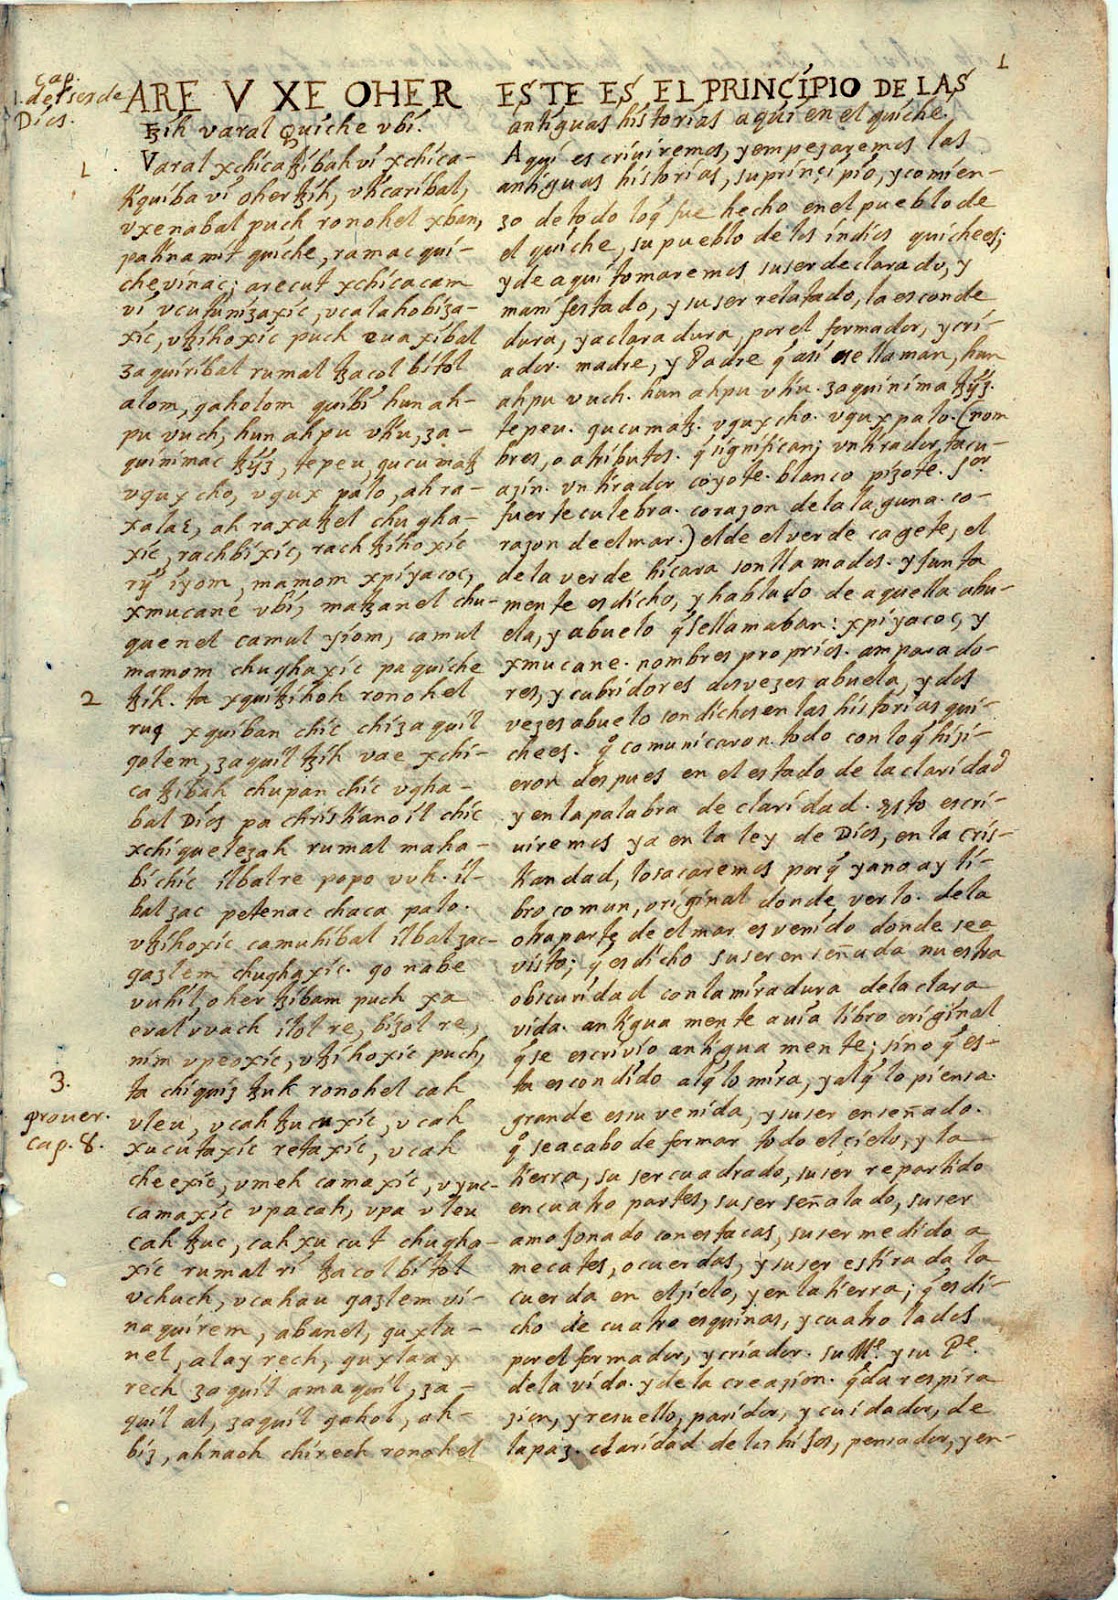 1
cap.
1. del ser de
Dios.
ARE V XE OHER
tzih varal quiche vbi.
1
Varal xchicatzibah vi xchica-
tiquiba vi oher tzih, vticaribal,
vxenabal puch ronohel xban,
pa tinamit quiche, ramac qui-
che vinac; arecut xchicacam
vi vcutunizaxic, vcalahobiza-
xic, vtzihoxic puch euaxibal
zaquiribal rumal tzacol bitol
alom, qaholom quibi hun ah-
pu vuch, hun ahpu vtiu, za-
quinimac tzyz, tepeu, qucumatz
vqux cho, vqux palo, ah ra-
xa la3, ah raxa tzel chugha-
xic, rachbixic, rach tzihoxic
ry iyom, mamom xpiyacoc,
xmucane vbi, matzanel chu-
quenel camul yiom, camul
mamom chughaxic pa quiche
2
tzih. ta xquitzihoh ronohel
ruq xquiban chic chi zaquil
qolem, zaquil tzih vae xchi-
ca tzibah chupan chic vgha-
bal Dios pa christianoil chic
xchiquelezah rumal maha-
bi chic ilbal re popo vuh. il-
bal zac petenac chaca palo.
vtzihoxic camuhibal ilbal zac-
qazlem chughaxic. go nabe
vuhil, oher tzibam puch xa
eval vvach ilol re, bizol re,
nim vpeoxic, vtzihoxic puch,
3.
ta chi quiz tzuk ronohel cah
prouer.
cap. 8.
uleu, vcah tzucuxic, vcah
xucutaxic retaxic, vcah
cheexic, vmeh camaxic, vyuc-
camaxic vpa cah, vpa vleu
cah tzuc, cah xucut chugha-
xic rumal ri tzacol bitol
vchuch, vcahau qazlem vi-
naquirem, abanel, quxla-
nel, alay rech, quxlaay
rech zaquil amaquil, za-
quil al, zaquil qahol, ah-
biz, ahnaoh chirech ronohel
ESTE ES EL PRINCIPIO DE LAS
antiguas historias aqui en el quiche.
Aqui escriuiremos, y empezaremos las
antiguas historias, su prinçipio, y comien-
zo de todo lo q̃ fue hecho en el pueblo de
el quiche, su pueblo de los indios quichees;
y de aqui tomaremos su ser declarado, y
manifestado, y su ser relatado, la escon de
dura, y aclaradura, por el formador, y cri-
ador. madre, y Padre q̃ asi se llaman, hun
ahpu vuch. hun ahpu vtiu. zaquinima tzyz.
tepeu. qucumatz. vqux cho. vqux palo. (nom
bres, o atributos. q̃ significan; vn tirador, tacu-
azin. vn tirador coyote. blanco pizote. sor
fuerte culebra. corazon de la laguna. co-
razon de el mar.) el de el verde cagete, el
de la verde hicara son llamados. y junta
mente es dicho, y hablado de aquella abu-
ela, y abuelo q̃ se llamaban: xpiyacoc, y
xmucane. nombres proprios. amparado-
res, y cubridores dos vezes abuela, y dos
vezes abuelo son dichos en las historias qui-
chees. q̃ comunicaron. todo con lo q̃ hizi-
eron despues en el estado de la claridad
y en la palabra de claridad. Esto escri-
uiremos ya en la ley de Dios, en la cris-
tiandad, lo sacaremos porq̃ ya no ay li-
bro comun, original donde verlo. de la
otra parte de el mar es venido donde sea
visto; q̃ es dicho su ser enseñada nuestra
obscuridad con la miradura de la clara
vida. antigua mente auia libro original
q̃ se escrivio antigua mente; sino q̃ es-
ta escondido al q̃ lo mira, y al q̃ lo piensa.
grande es su venida, y su ser enseñado.
q̃ se acabo de formar todo el çielo, y la
tierra, su ser cuadrado, su ser repartido
en cuatro partes, su ser señalado, su ser
amojonado con estacas, su ser medido a
mecates, o cuerdas, y su ser estirada la
cuerda en el zielo, y en la tierra; q̃ es di-
cho de cuatro esquinas, y cuatro lados
por el formador, y criador. su Me. y su Pe.
de la vida. y de la creazion. q̃ da respira
zion, y resuello, paridor, y cuidador, de
la paz. claridad de los hijos, pensador, y en-